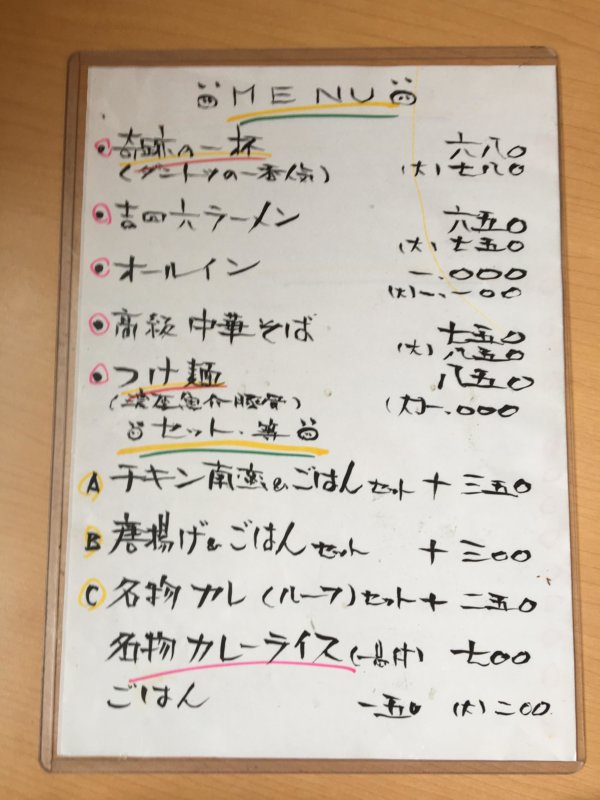 MENU
・奇跡の一杯 六八〇
(ダントツの一番人気) (大)七八〇
・吉四六ラーメン 六五〇
(大)七五〇
・オールイン 一.〇〇〇
(大)一.一〇〇
・高級中華そば 七五〇
(大)八五〇
・つけ麺 八五〇
(濃厚魚介豚骨) (大)一.〇〇〇
セット.等
A チキン南蛮&ごはんセット + 三五〇
B 唐揚げ&ごはんセット + 三〇〇
C 名物カレー(ルーフ)セット + 二五〇
名物カレーライス 七〇〇
ごはん 一五〇 (大)二〇〇